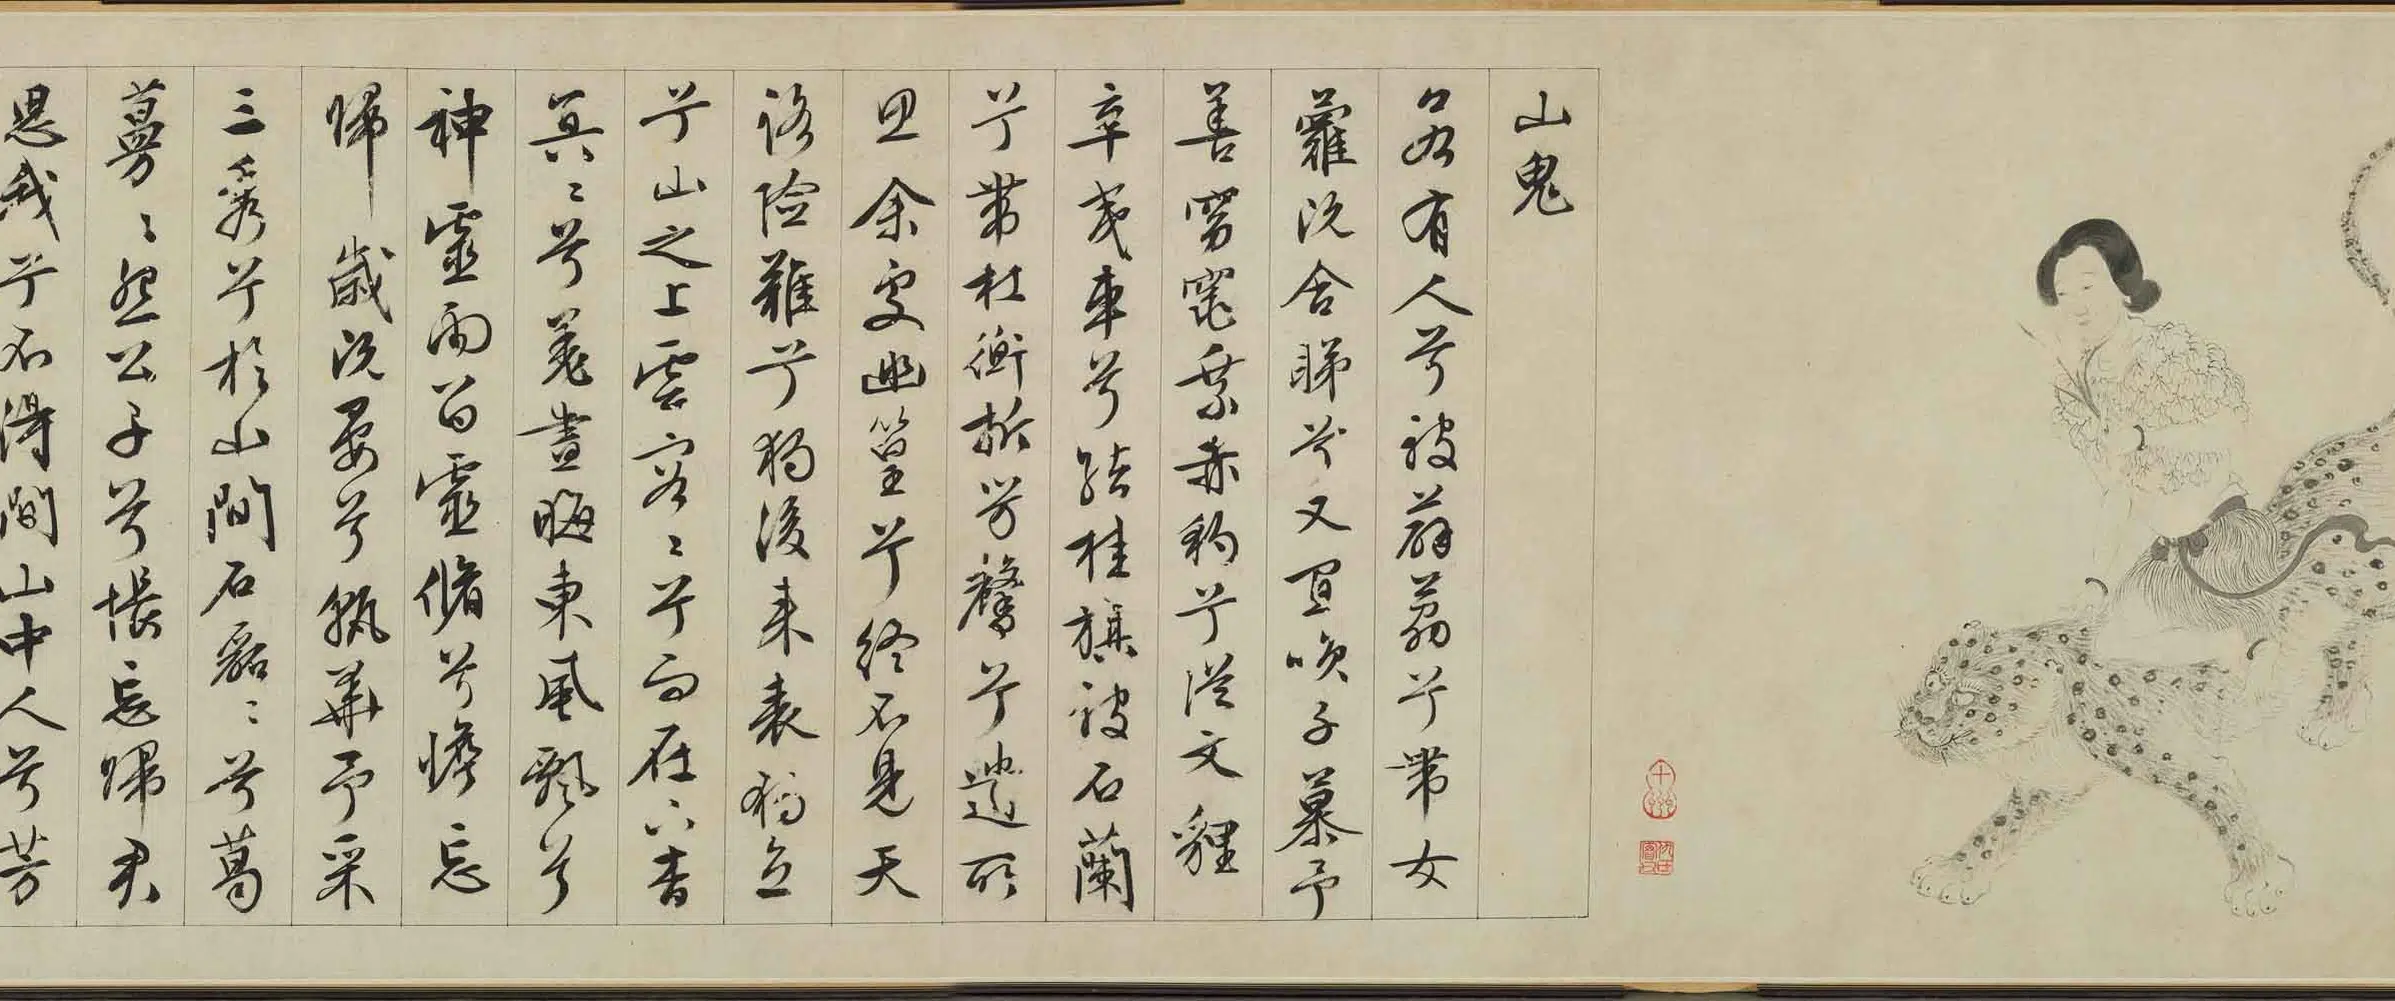 山鬼
若有人兮被薜荔兮帶女
蘿既含睇兮又宜咲子慕予
善窈窕乘赤豹兮從文貍
辛夷車兮結桂旗被石蘭
兮帶杜衡折芳馨兮遺所
思余處幽篁兮終不見天
路險難兮獨後来表獨立
兮山之上雲容〻兮而在下杳
冥〻兮羌晝晦東風飄兮
神靈雨留靈脩兮憺忘
歸歲既晏兮孰華予采
三秀兮於山間石磊〻兮葛
蔓〻怨公子兮悵忘歸君
思我兮不得閒山中人兮芳
十州